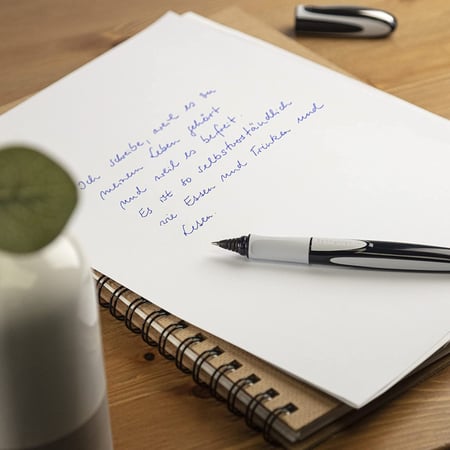 Ich schreibe, weil es zu
meinem Leben gehört
und weil es befreit.
Es ist so selbstverständlich
wie Essen und Trinken und
Lesen.